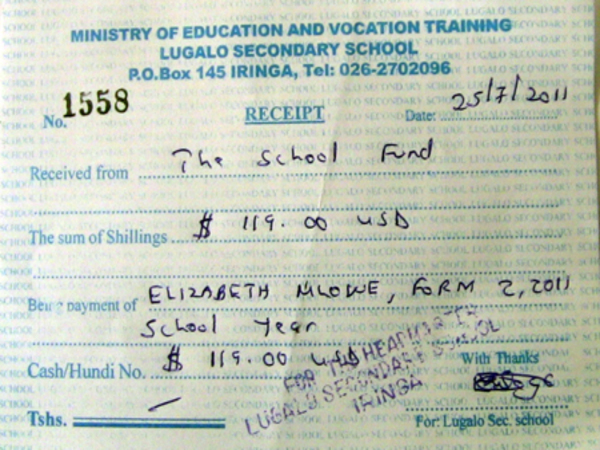 MINISTRY OF EDUCATION AND VOCATION TRAINING
LUGALO SECONDARY SCHOOL
P.O.Box 145 IRINGA, Tel: 026-2702096
No. 1558 RECEIPT Date: 25/7/2011
Received from The School Fund
The sum of Shillings $ 119.00 USD
Being payment of ELIZABETH MLOWE, FORM 2, 2011
School Year
Cash/Hundi No. $ 119.00 USD
FOR THE HEADMASTER
LUGALO SECONDARY SCHOOL
IRINGA
With Thanks
Tshs.
For: Lugalo Sec. school